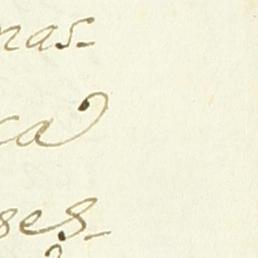 nas-
ca
ses-